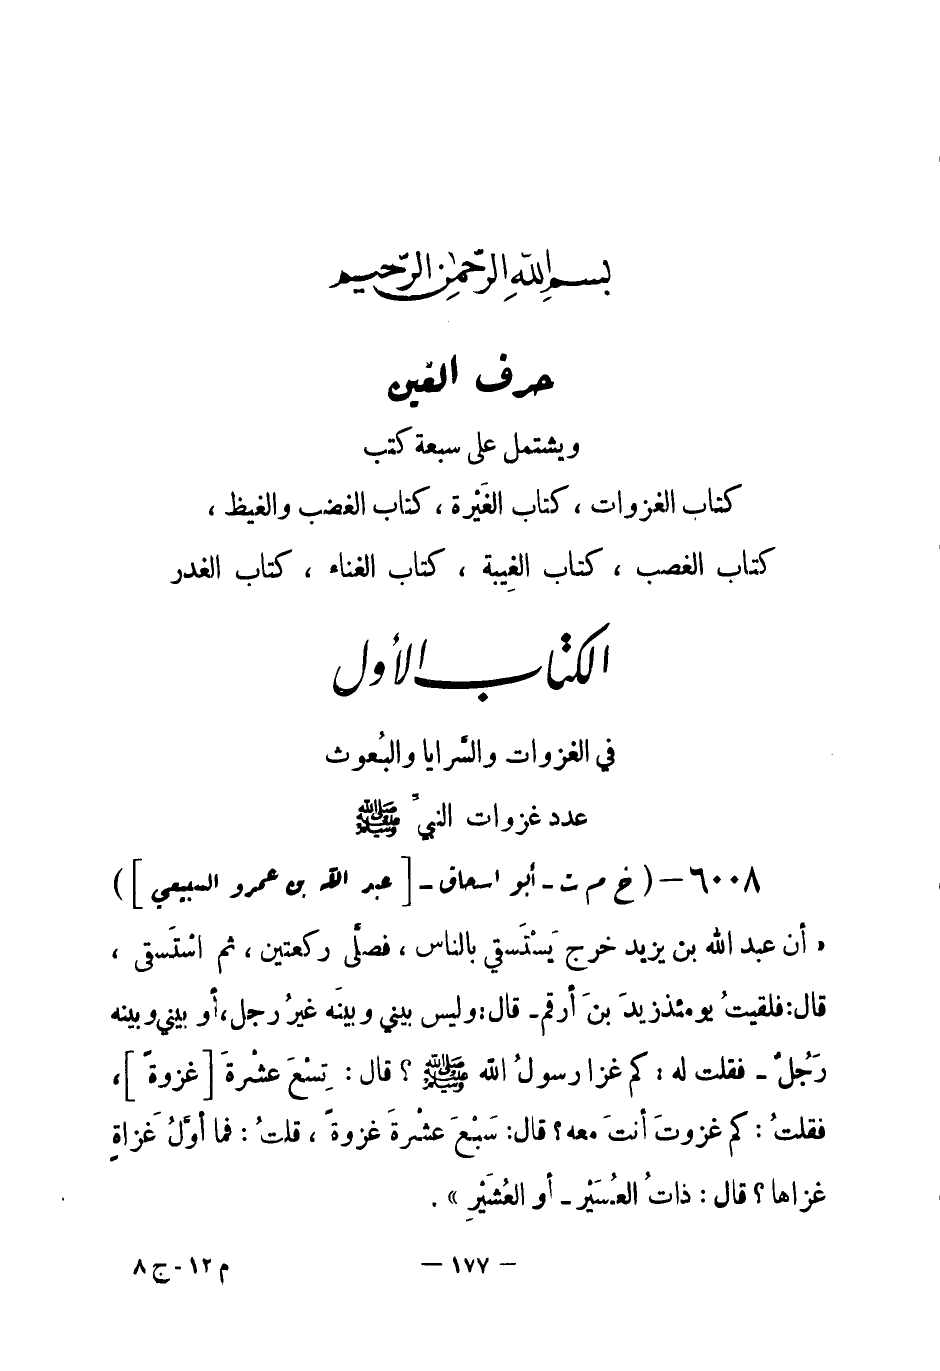 بسم الله الرحمن الرحيم
حرف الغين
ويشتمل على سبعة كتب
كتاب الغزوات ، كتاب الغَيْرة ، كتاب الغضب والغيظ ،
كتاب الغصب ، كتاب الغِيبة ، كتاب الغناء ، كتاب الغدر
الكتاب الأول
في الغزوات والسَّرايا والبُعوث
عدد غزوات النبيِّ ﷺ
٦٠٠٨ – ( خ م ت ـ أبو اسحاق ـ [ عبد الله بن عمرو السبيعي ] )
« أن عبد الله بن يزيد خرج يَسْتَسقي بالناس ، فصلَّى ركعتين ، ثم اسْتَسقى ،
قال: فلقيتُ يومئذ زيدَ بنَ أرقم ـ قال: وليس بيني وبينَه غيرُ رجل، أو بيني وبينه
رَجُلٌ ـ فقلت له : كم غزا رسولُ الله ﷺ ؟ قال : تِسْعَ عشْرةَ [ غزوةً ] ،
فقلتُ : كم غزوتَ أنتَ معه ؟ قال: سَبْعَ عشْرةَ غزوةً ، قلتُ : فما أوَّلُ غَزاةٍ
غزاها ؟ قال : ذاتُ العُسَيْرِ ـ أو العُشَيْرِ » .
– ١٧٧ –
م ١٢ - ج ٨